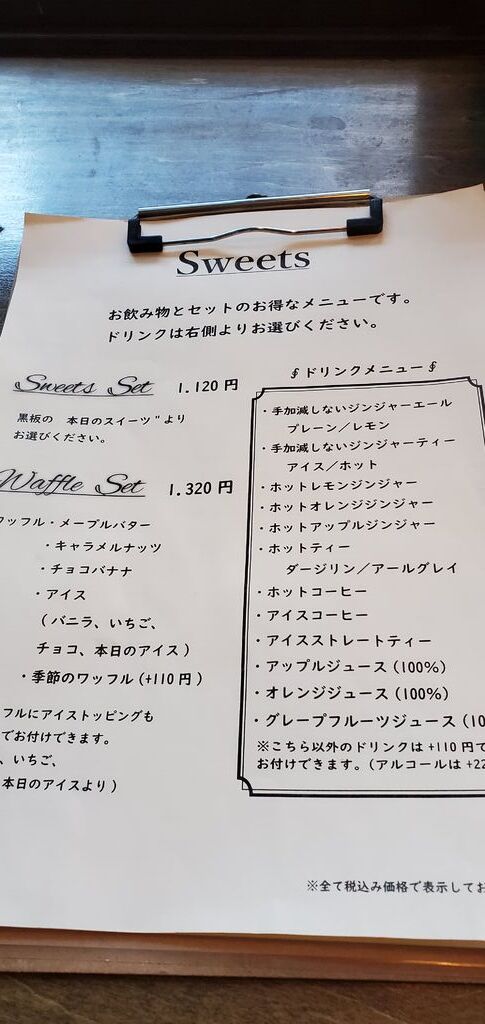 Sweets
お飲み物とセットのお得なメニューです。
ドリンクは右側よりお選びください。
Sweets Set 1.120 円
黒板の 本日のスイーツ"より
お選びください。
Waffle Set 1.320 円
ワッフル・メープルバター
・キャラメルナッツ
・チョコバナナ
・アイス
(バニラ、いちご、
チョコ、本日のアイス)
・季節のワッフル (+110 円)
フルにアイストッピングも
でお付けできます。
、いちご、
本日のアイスより)
∮ドリンクメニュー∮
・手加減しないジンジャーエール
プレーン／レモン
・手加減しないジンジャーティー
アイス／ホット
・ホットレモンジンジャー
・ホットオレンジジンジャー
・ホットアップルジンジャー
・ホットティー
ダージリン／アールグレイ
・ホットコーヒー
・アイスコーヒー
・アイスストレートティー
・アップルジュース (100%)
・オレンジジュース (100%)
・グレープフルーツジュース (10
※こちら以外のドリンクは +110 円で
お付けできます。(アルコールは +22
※全て税込み価格で表示してお